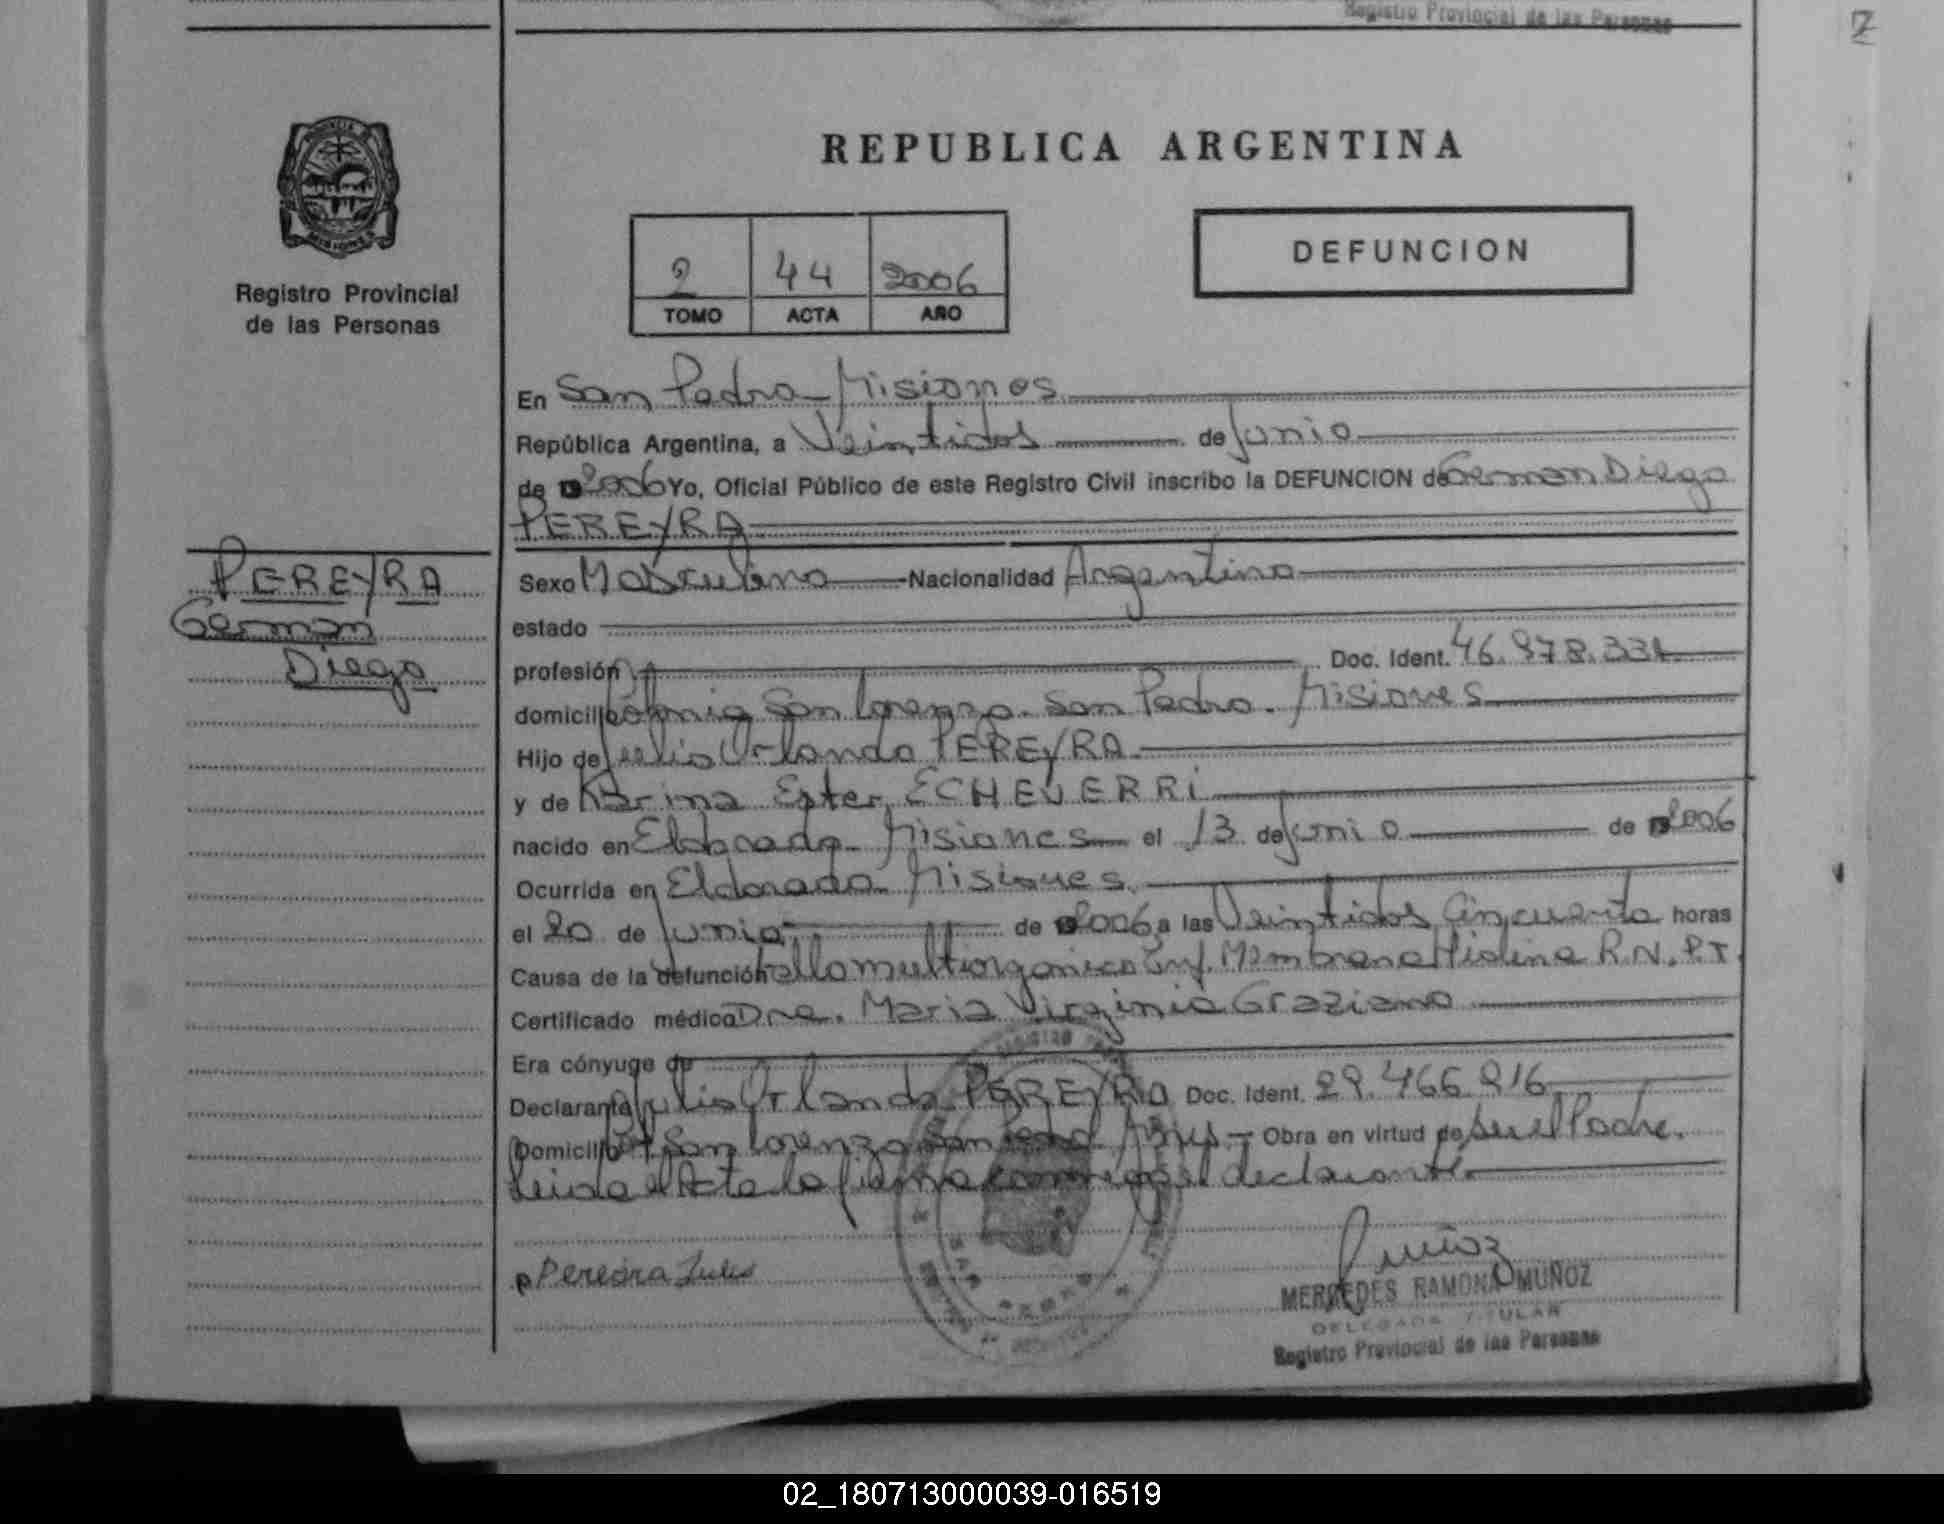 Registro Provincial de las Personas
2
REPUBLICA ARGENTINA
PROVINCIA DE
MISIONES
DEFUNCION
2 44 2006
TOMO ACTA AÑO
Registro Provincial
de las Personas
En San Pedro - Misiones
República Argentina, a Veintidos de Junio
de 2006 Yo, Oficial Público de este Registro Civil inscribo la DEFUNCION de German Diego
PEREYRA
PEREYRA
German
Diego
Sexo Masculino Nacionalidad Argentina
estado
profesión Doc. Ident. 46.978.331
domicilio Colonia San Lorenzo. San Pedro. Misiones
Hijo de Julio Orlando PEREYRA
y de Karina Ester ECHEVERRI
nacido en Eldorado - Misiones el 13 de Junio de 2006
Ocurrida en Eldorado Misiones
el 20 de Junio de 2006 a las Veintidos Cincuenta horas
Causa de la defunción Fallo multiorganico Enf. Membrana Hialina R.N.P.T.
Certificado médico Dra. Maria Virginia Graziano
Era cónyuge de
Declarante Julio Orlando PEREYRA Doc. Ident. 29.466.216
Domicilio San Lorenzo San Pedro Mnes - Obra en virtud de ser el Padre.
Leida el Acta la firma conmigo el declarante.
Pereira Julio
Muñoz
MERCEDES RAMONA MUÑOZ
DELEGADA TITULAR
Registro Provincial de las Personas
02_180713000039-016519